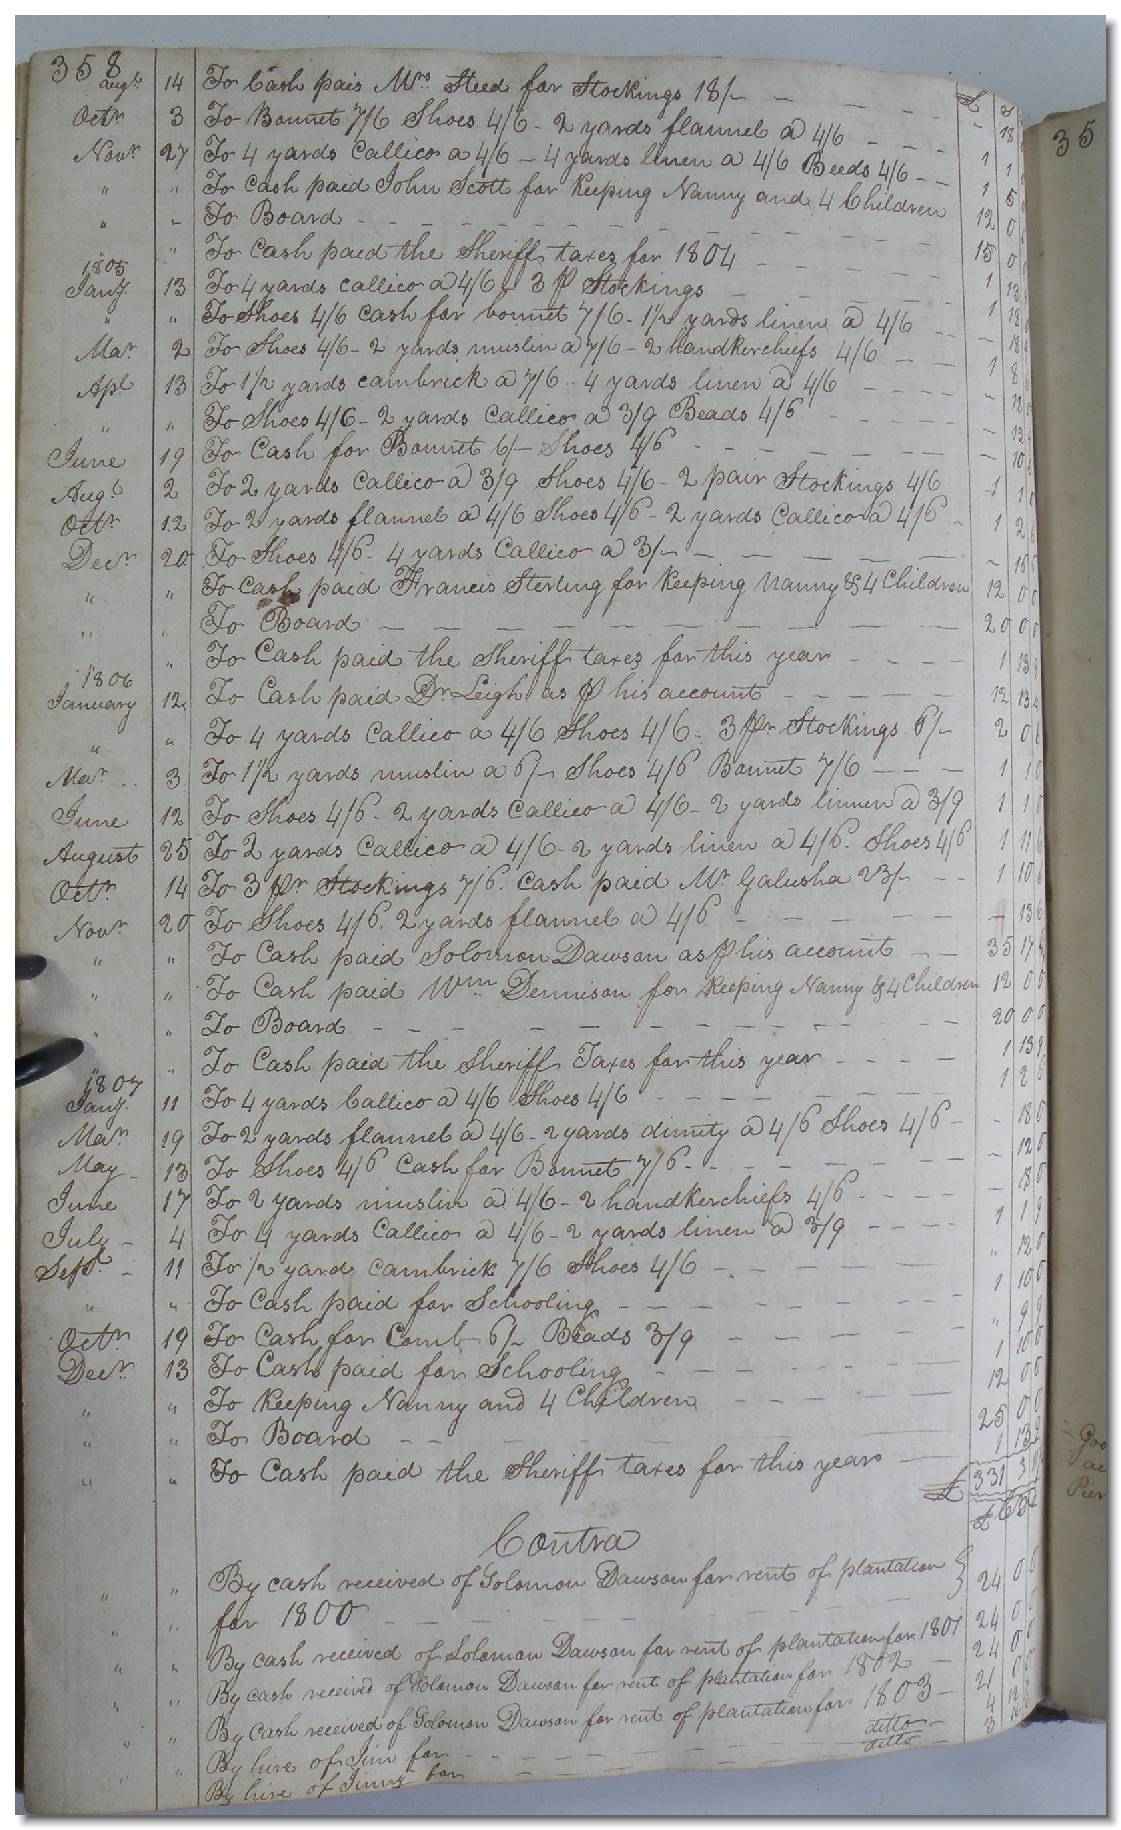 358
£ S
Augt 14 To Cash pais Mrs Steed for Stockings 18/- - 18
Octr 3 To Bonnet 7/6 Shoes 4/6 - 2 yards flannel a 4/6 1 1
Novr 27 To 4 yards Callico a 4/6 - 4 yards linen a 4/6 Beeds 4/6 1 5
" " To Cash paid John Scott for Keeping Nanny and 4 Children 12 0
" " To Board 15 0
" To Cash paid the Sheriff taxes for 1804 1 13
1805
Jany. 13 To 4 yards callico a 4/6 3 ⅌ Stockings 1 18
" " To Shoes 4/6 cash for bonnet 7/6 - 1½ yards linen a 4/6 - 18
Mar 2 To Shoes 4/6 - 2 yards muslin a 7/6 - 2 handkerchiefs 4/6 1 8
Apl 13 To 1½ yards cambrick a 7/6 .. 4 yards linen a 4/6
" " To Shoes 4/6 - 2 yards Callico a 3/9 Beads 4/6
June 19 To Cash for Bonnet 6/- Shoes 4/6 - 10 6
Augt 2 To 2 yards Callico a 3/9 Shoes 4/6 - 2 pair Stockings 4/6
Octr 12 To 2 yards flannel a 4/6 Shoes 4/6 - 2 yards Callico a 4/6 1 2 6
Decr 20 To Shoes 4/6 - 4 yards Callico a 3/- - 16 6
" " To Cash paid Francis Sterling for Keeping Nanny & 4 Children 12 0 0
" " To Board 20 0 0
" To Cash paid the Sheriff taxes for this year 1 13 9
1806
January 12 To Cash paid Dr Leigh as ⅌ his account 12 13
" " To 4 yards Callico a 4/6 Shoes 4/6 - 3 pr Stockings 6/- 2 0 6
Mar 3 To 1½ yards muslin a 6/- Shoes 4/6 Bonnet 7/6 1 1 0
June 12 To Shoes 4/6 - 2 yards Callico a 4/6 - 2 yards linnen a 3/9 1 1 0
August 25 To 2 yards Callico a 4/6 - 2 yards linen a 4/6. Shoes 4/6 1 11 6
Octr 14 To 3 pr Stockings 7/6. Cash paid Mr Galusha 23/- 1 10 6
Novr 20 To Shoes 4/6. 2 yards flannel a 4/6 - 13 6
" " To Cash paid Solomon Dawson as ⅌ his account 35 17
" " To Cash paid Wm Dennison for Keeping Nanny & 4 Children 12 0 0
" " To Board 20 0 0
" " To Cash paid the Sheriff Taxes for this year 1 13 9
1807
Jany. 11 To 4 yards Callico a 4/6 Shoes 4/6 1 2 6
Mar 19 To 2 yards flannel a 4/6 - 2 yards dimity a 4/6 Shoes 4/6
May 13 To Shoes 4/6 Cash for Bonnet 7/6 - 12 0
June 17 To 2 yards muslin a 4/6 - 2 handkerchiefs 4/6 - 18 0
July 4 To 4 yards Callico a 4/6 - 2 yards linen a 3/9 1 1 9
Sept. 11 To ½ yard cambrick 7/6 Shoes 4/6 " 12 0
" " To Cash paid for Schooling 1 10 0
Octr 19 To Cash for Comb 6/- Beads 3/9 " 9 9
Decr 13 To Cash paid for Schooling 1 10 0
" " To Keeping Nanny and 4 Children 12 0 0
" " To Board 25 0 0
" " To Cash paid the Sheriff taxes for this year 1 13 9
£ 331 3
Contra
" " By cash received of Solomon Dawson for rent of plantation
" " for 1800 24 0 0
" " By cash received of Solomon Dawson for rent of plantation for 1801 24 0 0
" " By cash received of Solomon Dawson for rent of plantation for 1802 24 0 0
" " By Cash received of Solomon Dawson for rent of plantation for 1803 21 0 0
" " By hire of Jim for ditto 4
By hire of Jinny for ditto 3
35